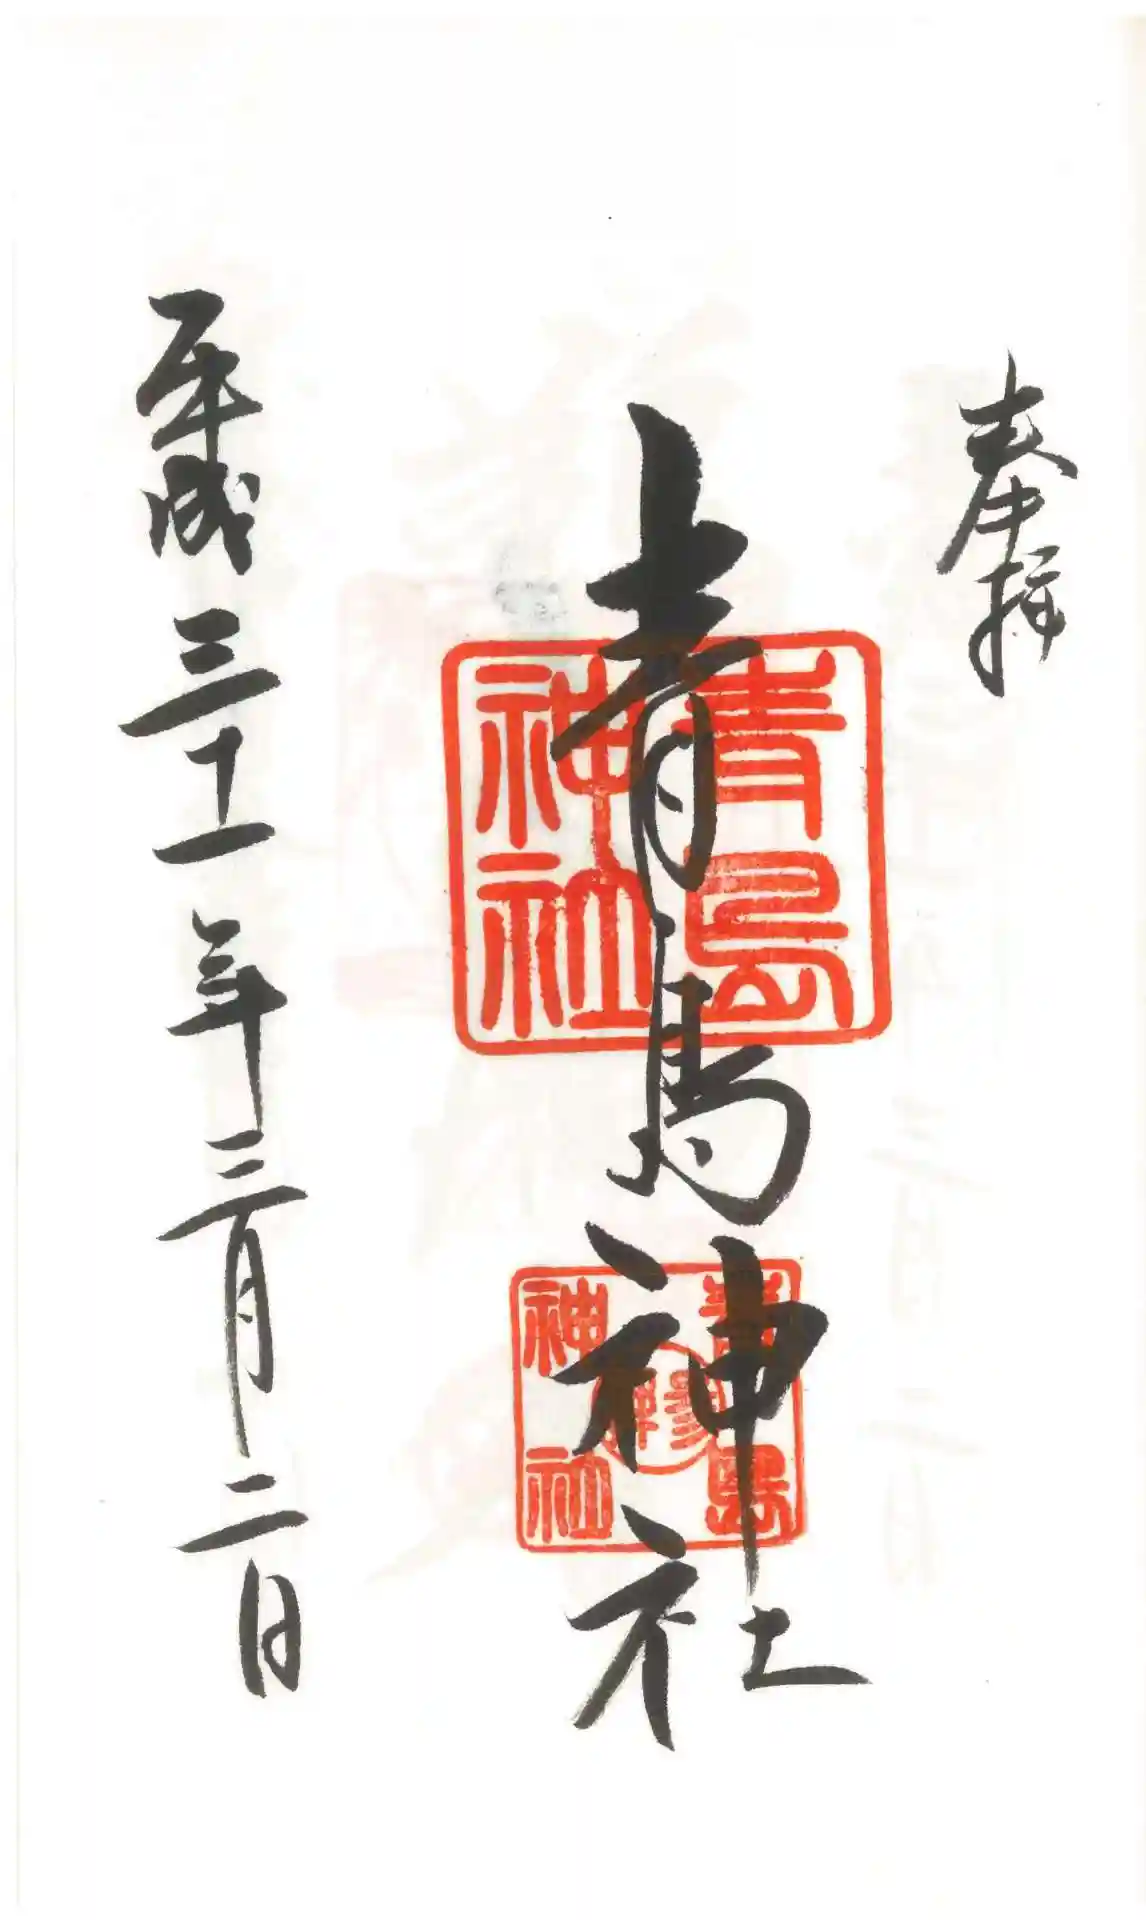 奉拝
青島神社
青島
神社
青島
神社
平成三十一年三月二日